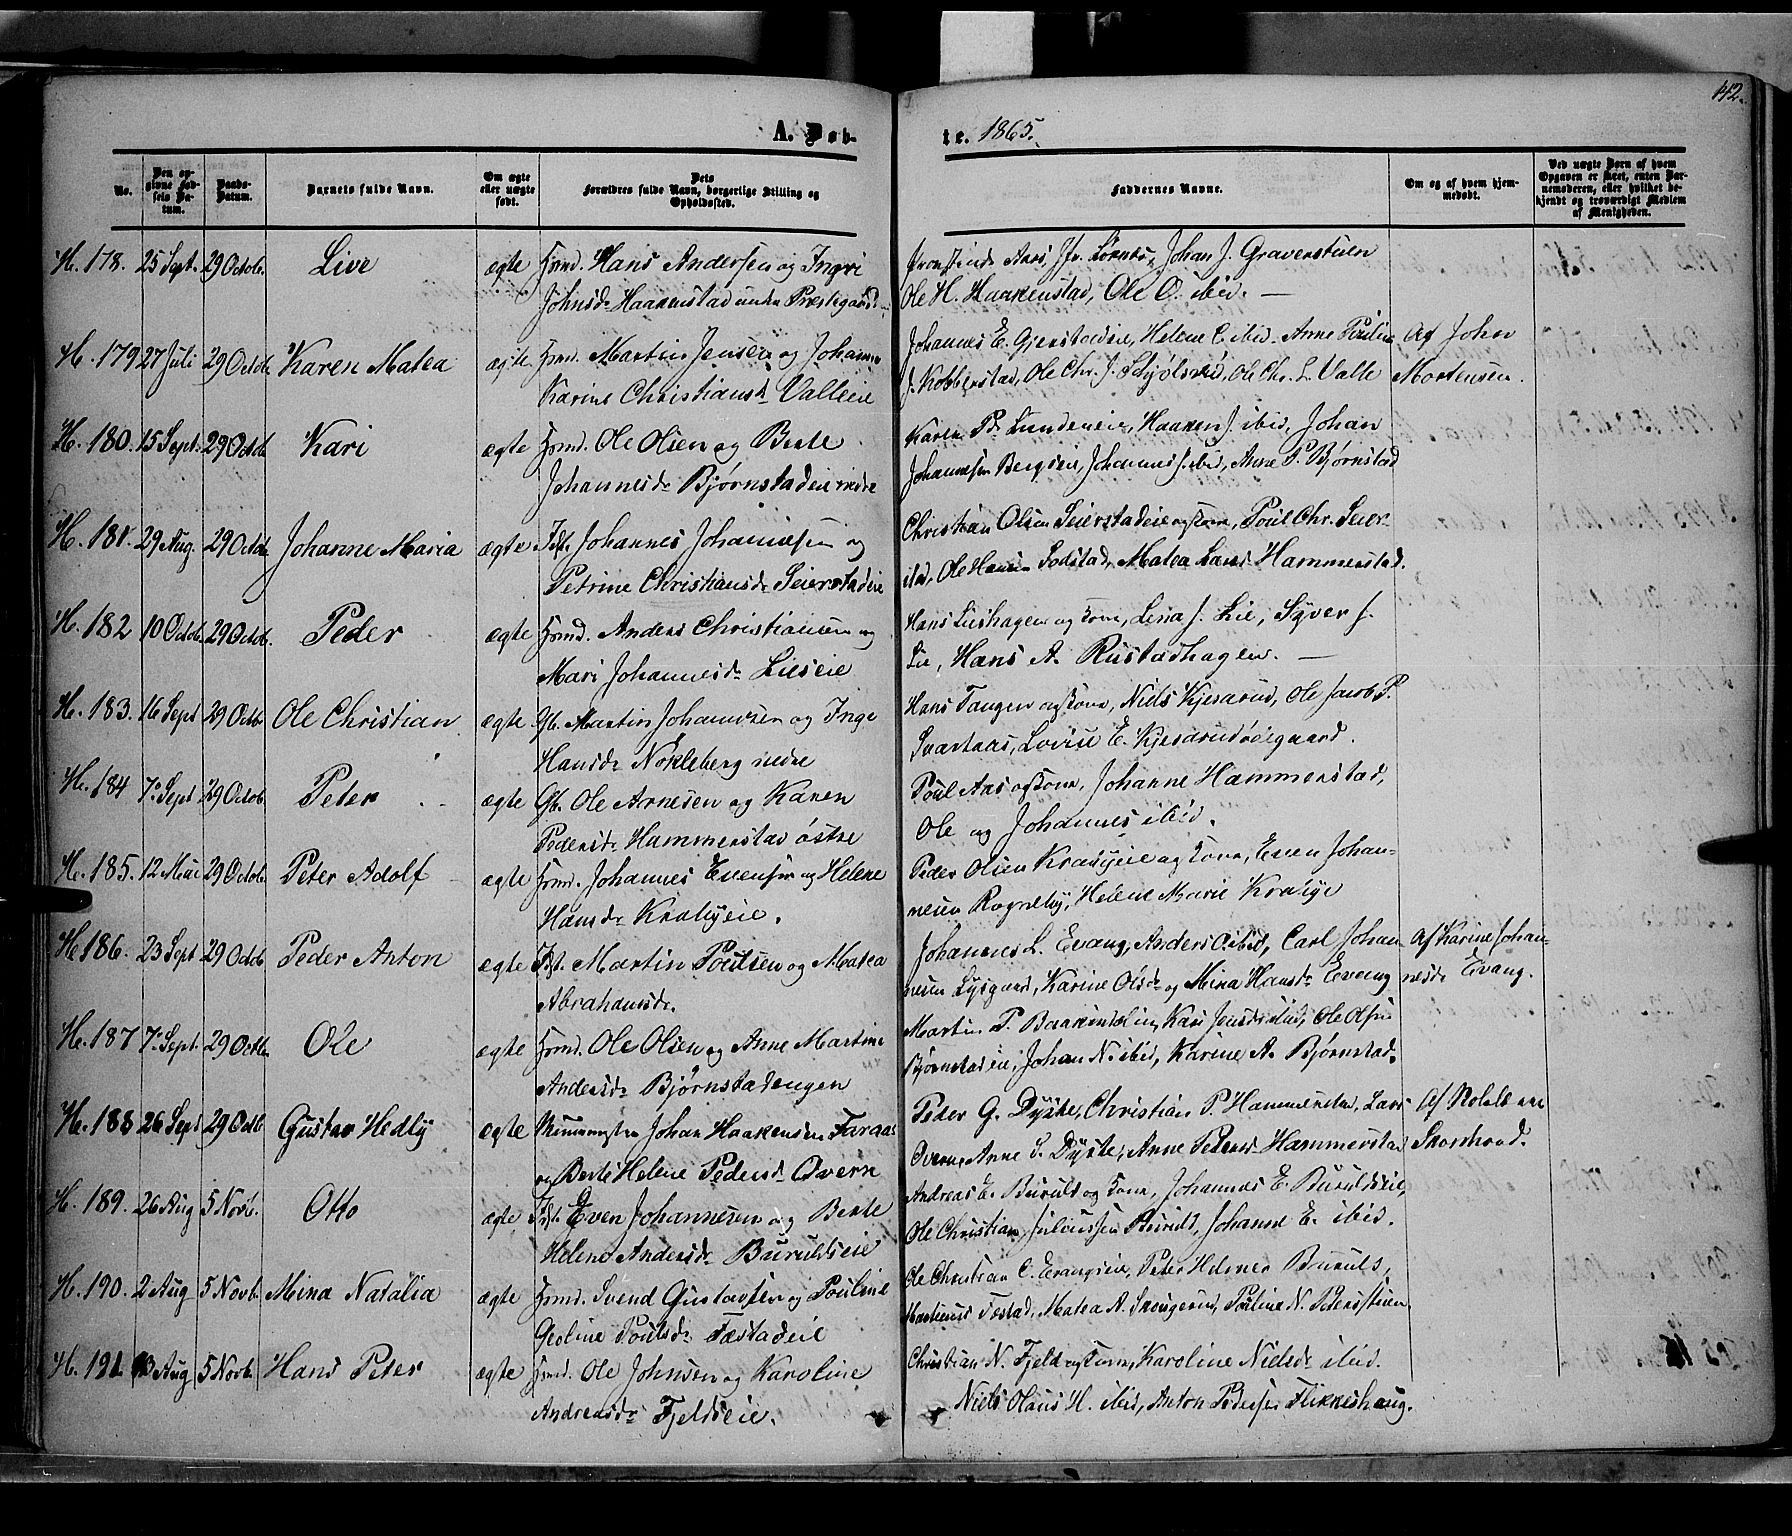 142.
A. Døb-
te. 1865.
No.
Den opgivne Fødsels Datum.
Daabs-Datum.
Barnets fulde Navn.
Om ægte eller uægte født.
Dets Forældres fulde Navn, borgerlige Stilling og Opholdssted.
Faddernes Navne.
Om og af hvem hjemmedøbt.
Ved uægte Børn af hvem Opgaven er skeet, enten Barnemoderen, eller hvilket bekjendt og troværdigt Medlem af Menigheden.
H. 178. 25 Sept. 29 Octob. Live ægte Hsmd. Hans Andersen og Ingri
Johnsdr Haakenstad under Præstegaard
Johan J. Gravenstuen
Ole H. Haakenstad, Ole O. ibid. —
H. 179 27 Juli 29 Octob. Karen Matea ægte Hsmd. Martin Jensen og Johanne
Karine Christiansdr Valleie
Johannes E. Gjerstadeie, Helene E. ibid. Anne Pauline Af Johan
J. Kobberstad, Ole Chr. J. Ole Chr. L. Valle Mortensen.
H. 180. 15 Sept. 29 Octob. Kari ægte Hsmd. Ole Olsen og Berte
Johannesdr Bjørnstadeie nedre
Karen P. Lundeneie, Haaken J. ibid, Johan
Johannesen Bergseie, Johannes J. ibid, Anne P. Bjørnstad
H. 181. 29 Aug. 29 Octob. Johanne Maria ægte Inst. Johannes Johannesen og
Petrine Christiansdr Seierstadeie
Christian Olsen Seierstadeie og Kone, Poul Chr. Seier-
stad, Ole Hansen Sodstad, Matea Larsd. Hammerstad.
H. 182 10 Octob. 29 Octob. Peder ægte Hsmd. Anders Christiansen og
Mari Johannesdr Lieseie
Hans Lieshagen og Kone, Lena J. Lie, Syver J.
Lie, Hans A. Rustadhagen. —
H. 183. 16 Sept 29 Octob Ole Christian ægte Gb. Martin Johannesen og Inge
Hansdr Nøkleberg nedre
Hans Tangen og Kone, Niels Kjesarud, Ole Jacob P.
Svartaas, Lovise E. Kjesarudødegaard.
H. 184 7 Sept 29 Octob Peter ægte Gb. Ole Arnesen og Karen
Pedersdr Hammerstad østre
Poul Aas og Kone, Johanne Hammerstad,
Ole og Johannes ibid.
H. 185. 12 Mai 29 Octob. Peter Adolf ægte Hsmd. Johannes Evensen og Helene
Hansdr Krabyeie.
Peder Olsen Krabyeie og Kone, Even Johan-
nesen Rogneby, Helene Marie Krabye
H. 186. 23 Sept 29 Octob Peder Anton ægte Inst. Martin Poulsen og Matea
Abrahamsdr.
Johannes L. Evang, Anders O. ibid, Carl Johan- Af Karine Johan-
nesen Lysgaard, Karine Olsdr og Mina Hansdr Evang nesdr Evang.
H. 187 7 Sept. 29 Octb. Ole ægte Hsmd. Ole Olsen og Anne Martine
Andersdr Bjørnstadengen
Martin P. Kari Jensdr ibid, Ole Olsen
Bjørnstadeie, Johan N. ibid, Karine A. Bjørnstad.
H. 188 26 Sept 29 Octb Gustav Hedly ægte Johan Haakensen Faraas
og Berte Helene Pedersdr Overn
Peder G. Dyste, Christian P. Hammerstad, Lars
Overn, Anne S. Dyste, Anne Pedersd. Hammerstad
H. 189. 26 Aug 5 Novb. Otto ægte Inst. Even Johannesen og Berte
Helene Andersdr Buruldseie
Andreas E. Buruld og Kone, Johannes E. Buruldseie,
Ole Christian Juliussen Buruld, Johanne E. ibid.
H. 190. 2 Aug 5 Novb. Mina Natalia ægte Hsmd. Svend Gustavsen og Pouline
Geoline Poulsdr Fæstadeie
Ole Christian C. Evangseie, Peter Helmer Buruld,
Martinus Fæstad, Matea A. Skougerud, Pouline N.
H. 191. 13 Aug 5 Novb. Hans Peter ægte Hsmd. Ole Johnsen og Karoline
Andreasdr Fjeldseie.
Christian N. Fjeld og Kone, Karoline Nielsdr ibid.
Niels Olaus H. ibid, Anton Pedersen Flikkeshaug.